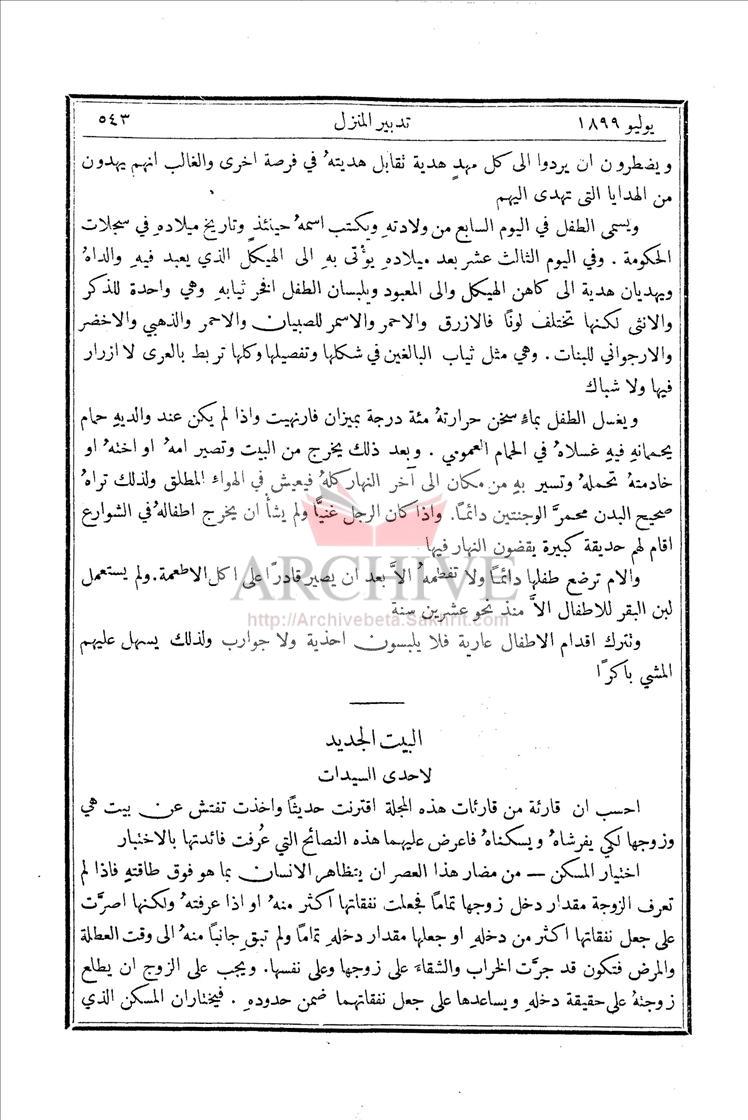 يوليو ١٨٩٩ تدبير المنزل ٥٤٣
ويضطرون ان يردوا الى كل مهدٍ هدية تقابل هديتهُ في فرصة اخرى والغالب انهم يهدون
من الهدايا التي تهدى اليهم
ويسمى الطفل في اليوم السابع من ولادتهِ ويكتب اسمهُ حينئذٍ وتاريخ ميلادهِ في سجلات
الحكومة . وفي اليوم الثالث عشر بعد ميلادهِ يؤتى بهِ الى الهيكل الذي يعبد فيهِ والداهُ
ويهديان هدية الى كاهن الهيكل والى المعبود ويلبسان الطفل افخر ثيابهِ وهي واحدة للذكر
والانثى لكنها تختلف لونًا فالازرق والاحمر والاسمر للصبيان والاحمر والذهبي والاخضر
والارجواني للبنات . وهي مثل ثياب البالغين في شكلها وتفصيلها وكلها تربط بالعرى لا ازرار
فيها ولا شباك
ويغسل الطفل بماءٍ سخن حرارتهُ مئة درجة بميزان فارنهيت واذا لم يكن عند والديهِ حمام
يحممانهِ فيهِ غسلاهُ في الحمام العمومي . وبعد ذلك يخرج من البيت وتصير امهُ او اختهُ او
خادمتهُ تحملهُ وتسير بهِ من مكان الى آخر النهار كلهُ فيعيش في الهواء المطلق ولذلك تراهُ
صحيح البدن محمرَّ الوجنتين دائمًا. واذا كان الرجل غنيًّا ولم يشأ ان يخرج اطفالهُ في الشوارع
اقام لهم حديقة كبيرة يقضون النهار فيها
ARCHIVE
والام ترضع طفلها دائمًا ولا تفطمهُ الاَّ بعد ان يصير قادرًا على اكل الاطعمة. ولم يستعمل
لبن البقر للاطفال الاَّ منذ نحو عشرين سنة
http://Archivebeta.Sakhrit.com
وتترك اقدام الاطفال عارية فلا يلبسون احذية ولا جوارب ولذلك يسهل عليهم
المشي باكرًا
البيت الجديد
لاحدى السيدات
احسب ان قارئة من قارئات هذه المجلة اقترنت حديثًا واخذت تفتش عن بيت هي
وزوجها لكي يفرشاهُ ويسكناهُ فاعرض عليهما هذه النصائح التي عُرفت فائدتها بالاختبار
اختيار المسكن — من مضار هذا العصر ان يتظاهر الانسان بما هو فوق طاقتهِ فاذا لم
تعرف الزوجة مقدار دخل زوجها تمامًا فجعلت نفقاتها اكثر منهُ او اذا عرفتهُ ولكنها اصرَّت
على جعل نفقاتها اكثر من دخلهِ او جعلها مقدار دخلهِ تمامًا ولم تبقِ جانبًا منهُ الى وقت العطلة
والمرض فتكون قد جرَّت الخراب والشقاء على زوجها وعلى نفسها. ويجب على الزوج ان يطلع
زوجتهُ على حقيقة دخلهِ ويساعدها على جعل نفقاتهما ضمن حدودهِ . فيختاران المسكن الذي